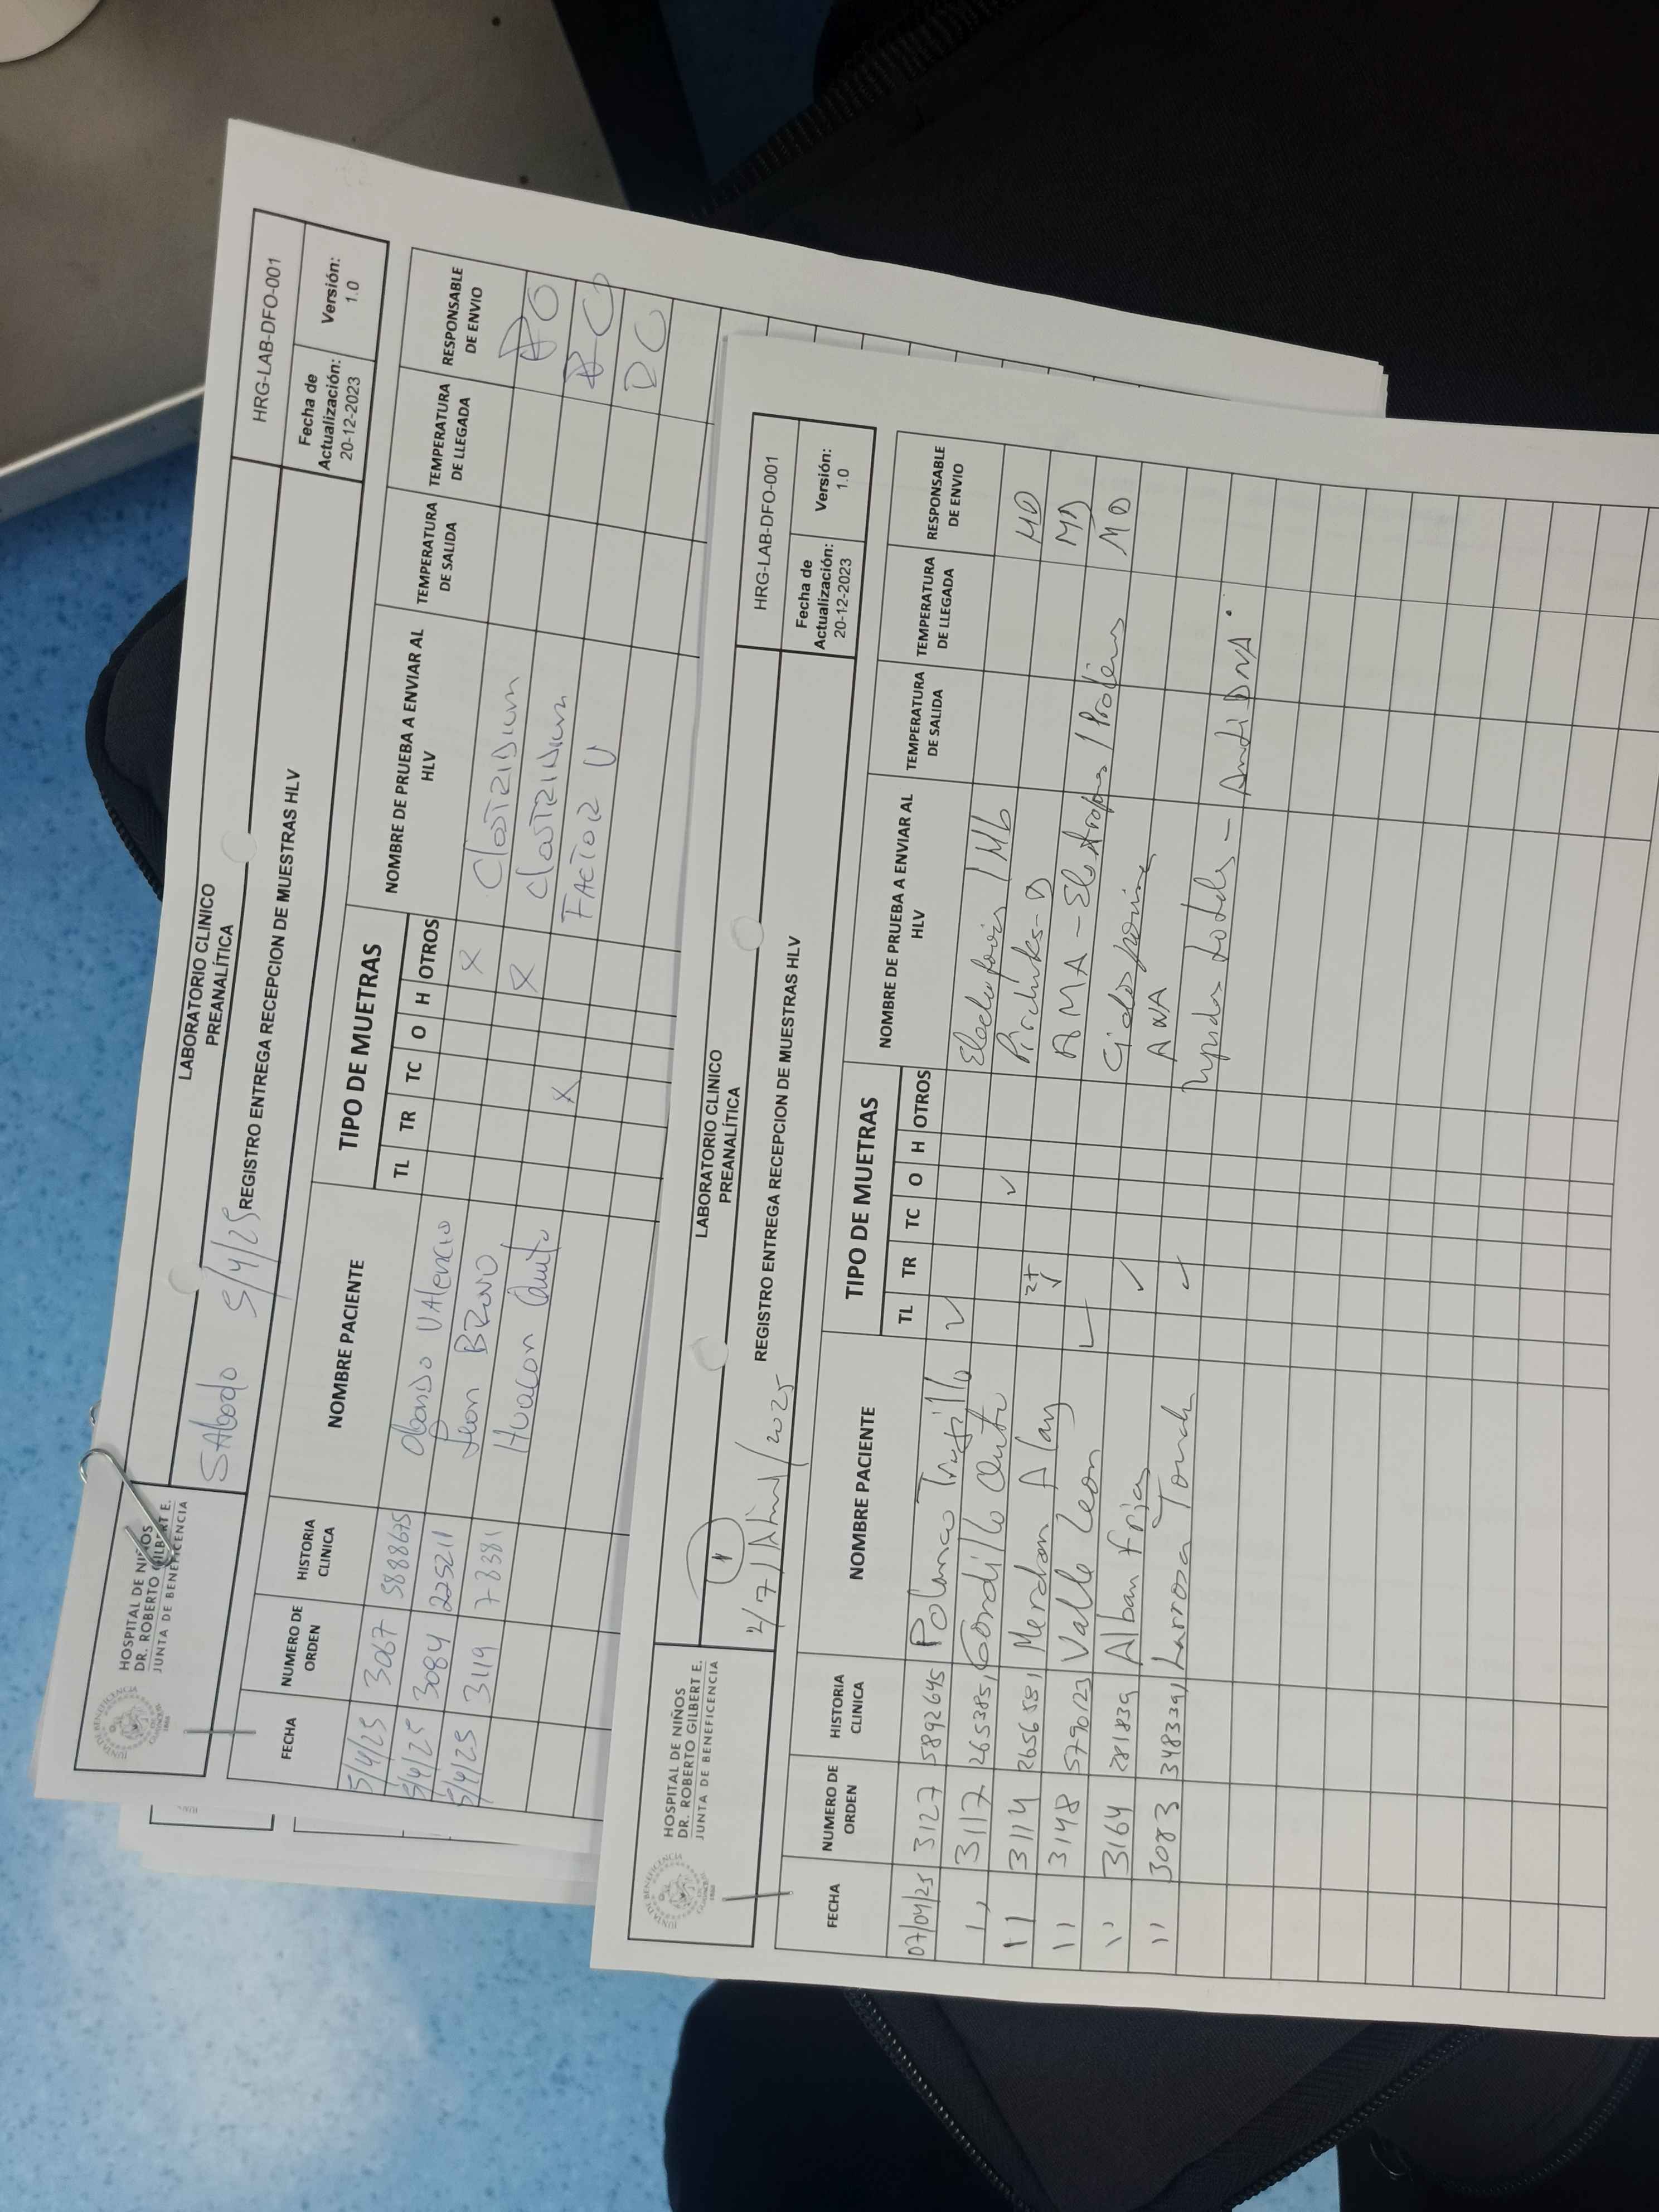 HOSPITAL DE NIÑOS
DR. ROBERTO GILBERT E.
JUNTA DE BENEFICENCIA
LABORATORIO CLINICO
PREANALÍTICA
HRG-LAB-DFO-001
SAbado 5/4/25
REGISTRO ENTREGA RECEPCION DE MUESTRAS HLV
Fecha de Actualización: 20-12-2023
Versión: 1.0
FECHA NUMERO DE ORDEN HISTORIA CLINICA NOMBRE PACIENTE TIPO DE MUETRAS NOMBRE DE PRUEBA A ENVIAR AL HLV TEMPERATURA DE SALIDA TEMPERATURA DE LLEGADA RESPONSABLE DE ENVIO
TL TR TC O H OTROS
5/4/25 3067 5888675 Obando VAlencio X ClosTRIDium DC
5/4/25 3084 225211 Leon BRAVO X ClosTRIDium DC
5/4/25 3119 Huacon Quito X FACTOR V DC
HOSPITAL DE NIÑOS
DR. ROBERTO GILBERT E.
JUNTA DE BENEFICENCIA
LABORATORIO CLINICO
PREANALÍTICA
HRG-LAB-DFO-001
1
REGISTRO ENTREGA RECEPCION DE MUESTRAS HLV
Fecha de Actualización: 20-12-2023
Versión: 1.0
FECHA NUMERO DE ORDEN HISTORIA CLINICA NOMBRE PACIENTE TIPO DE MUETRAS NOMBRE DE PRUEBA A ENVIAR AL HLV TEMPERATURA DE SALIDA TEMPERATURA DE LLEGADA RESPONSABLE DE ENVIO
TL TR TC O H OTROS
07/04/25 3127 5892645 Polanco Trujillo ✓ / Hb
'' 3117 265385 Gordillo Quito ✓ MD
'' 3114 Merchan Alay ✓ AMA - MD
'' 3148 579023 Valle Leon ✓ MD
'' 3164 281839 Alban Frias ✓ ANA
'' 3083 348339 Larrosa ✓ - Anti DNA.